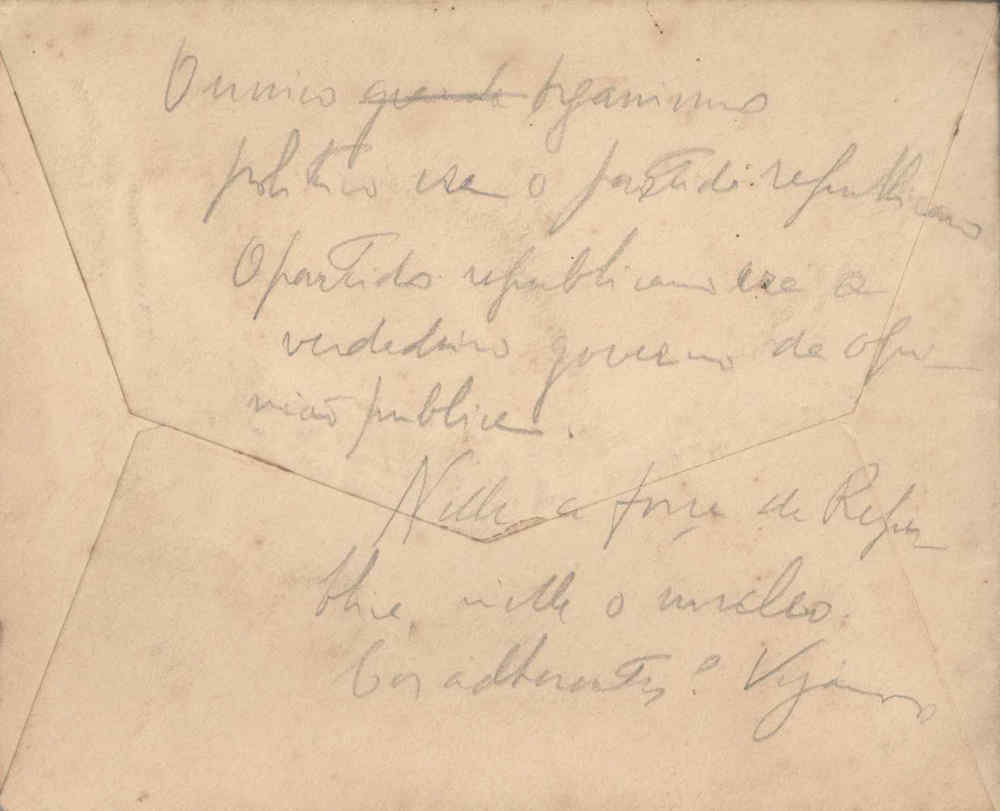 O unico ~~grande~~ organismo
politico era o partido republicano
O partido republicano era o
verdadeiro governo da opi-
nião publica.
Nelle a força da Repu-
blica, nelle o nucleo.
E os adherentes? Vejamos